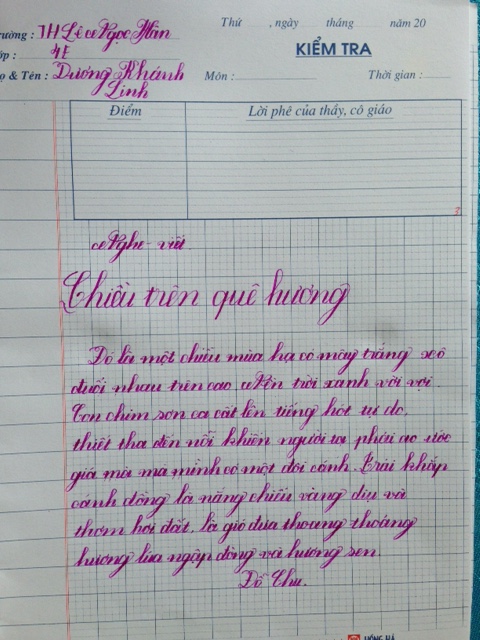 Thứ , ngày tháng năm 20
rường : TH Lê Ngọc Hân
KIỂM TRA
ớp : 4E
ọ & Tên : Dương Khánh Linh
Môn : Thời gian :
Điểm Lời phê của thầy, cô giáo
Nghe - viết
Chiều trên quê hương
Đó là một chiều mùa hạ có mây trắng xô
đuổi nhau trên cao. Nền trời xanh vời vợi.
Con chim sơn ca cất lên tiếng hót tự do,
thiết tha đến nỗi khiến người ta phải ao ước
giá mà mình có một đôi cánh. Trải khắp
cánh đồng là nắng chiều vàng dịu và
thơm hơi đất, là gió đưa thoang thoảng
hương lúa ngập đòng và hương sen.
Đỗ Chu.
HỒNG HÀ